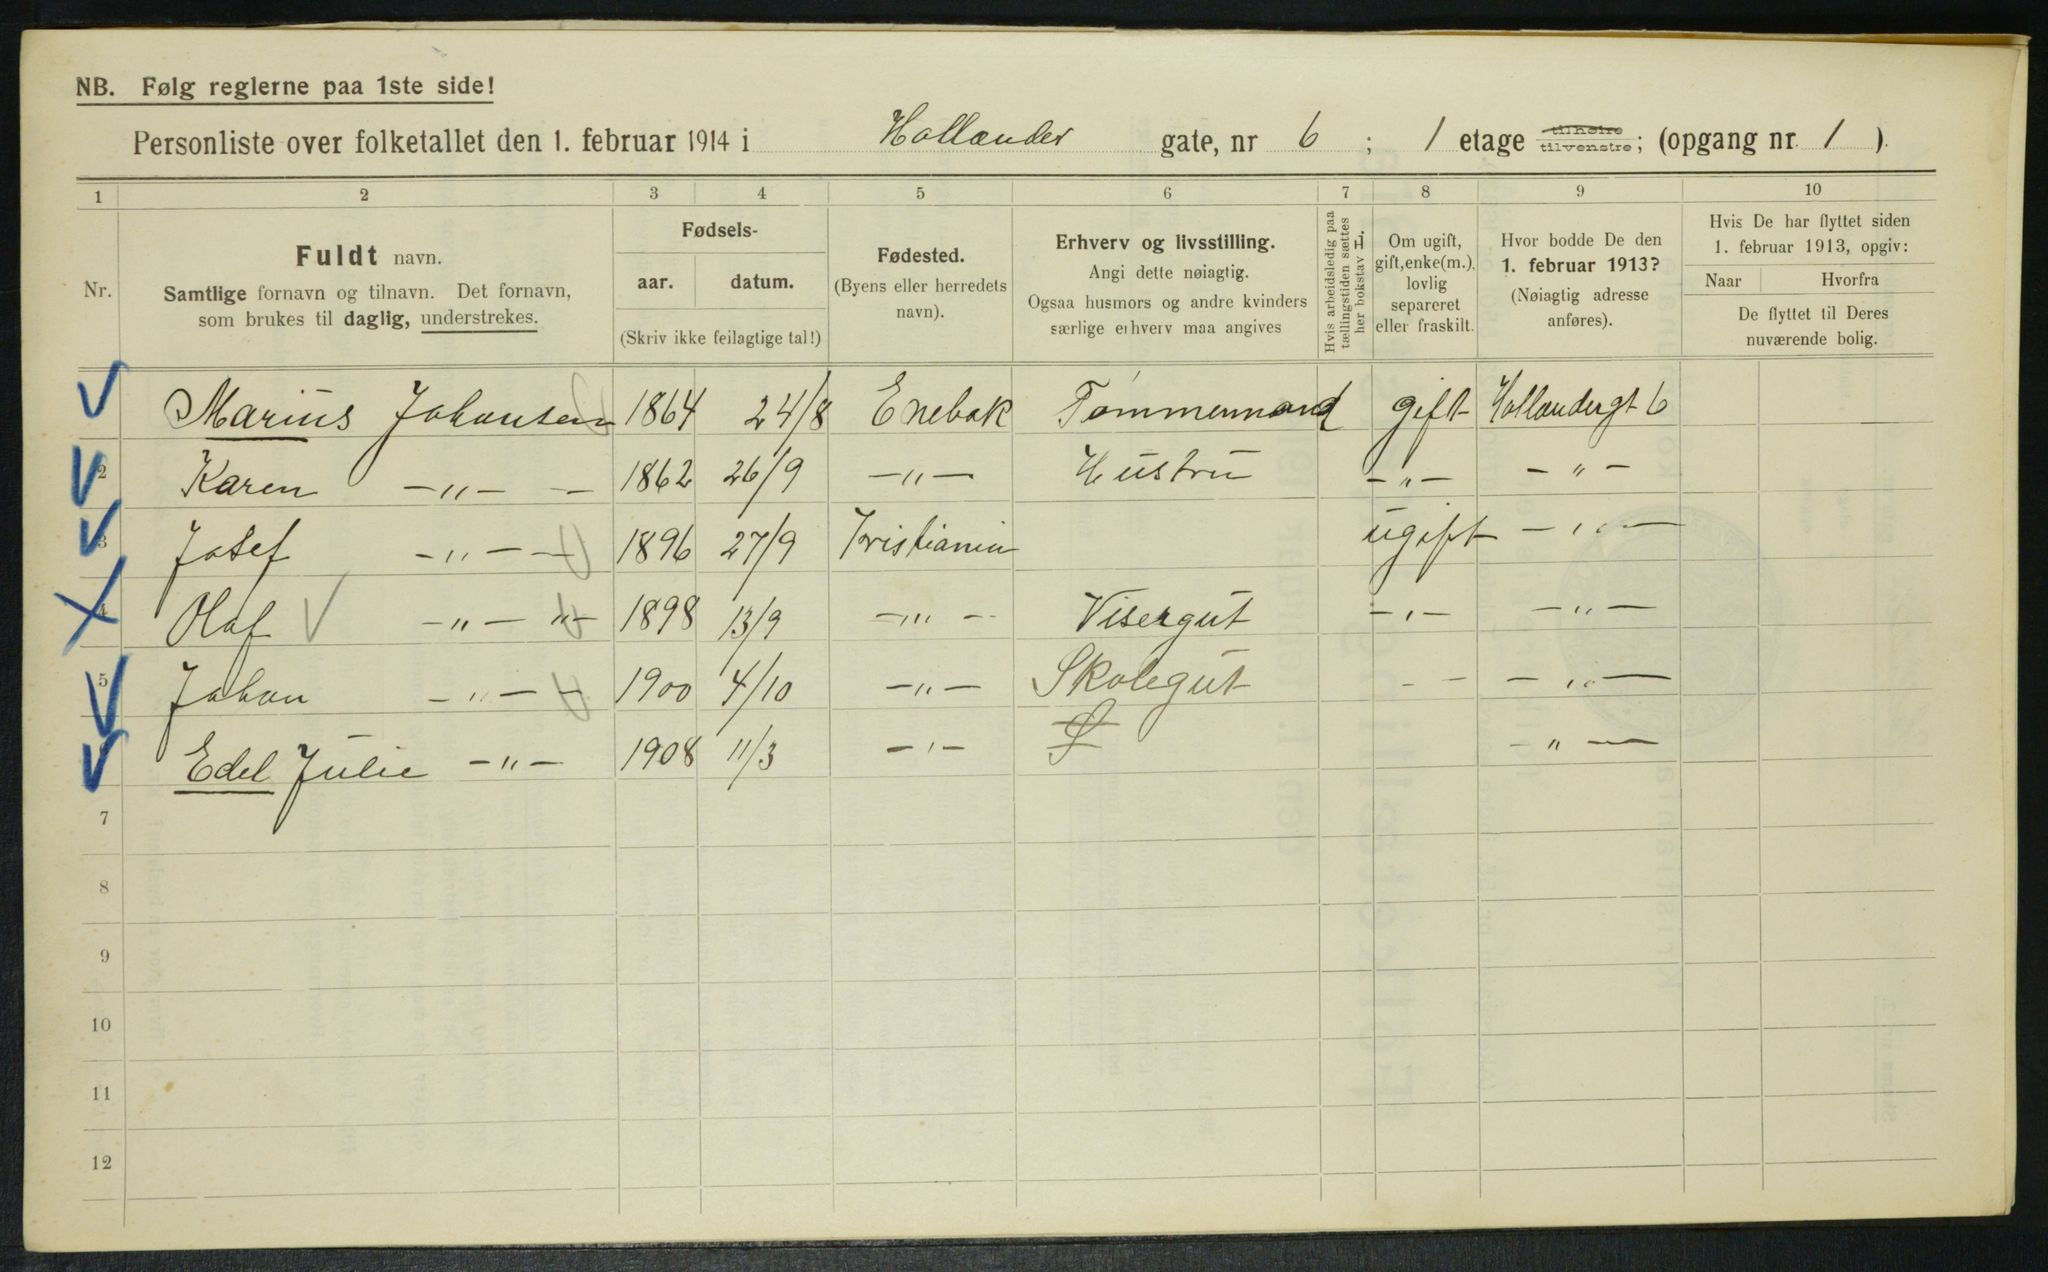 NB. Følg reglerne paa 1ste side!
Personliste over folketallet den 1. februar 1914 i Hollænder gate, nr 6 ; 1 etage tilhøire tilvenstre; (opgang nr. 1 ).
1 2 3 4 5 6 7 8 9 10
Nr.
Fuldt navn.
Samtlige fornavn og tilnavn. Det fornavn,
som brukes til daglig, understrekes.
Fødsels-
aar. datum.
(Skriv ikke feilagtige tal!)
Fødested.
(Byens eller herredets
navn).
Erhverv og livsstilling.
Angi dette nøiagtig.
Ogsaa husmors og andre kvinders
særlige erhverv maa angives
Hvis arbeidsledig paa
tællingstiden sættes
her bokstav L.
Om ugift,
gift, enke(m.),
lovlig
separeret
eller fraskilt.
Hvor bodde De den
1. februar 1913?
(Nøiagtig adresse
anføres).
Hvis De har flyttet siden
1. februar 1913, opgiv:
Naar Hvorfra
De flyttet til Deres
nuværende bolig.
Marius Johansen 1864 24/8 Enebak Tømmermand gift Hollændergt 6
2 Karen —"— — 1862 26/9 —"— Hustru —"— —"—
3 Josef —"— — 1896 27/9 Kristiania ugift —"—
4 Olaf —"— "— 1898 13/9 —"— Visergut —"— —"—
5 Johan —"— — 1900 4/10 —"— Skolegut — — —"—
Edel Julie —"— 1908 11/3 —"— —"—
7
8
9
10
11
12